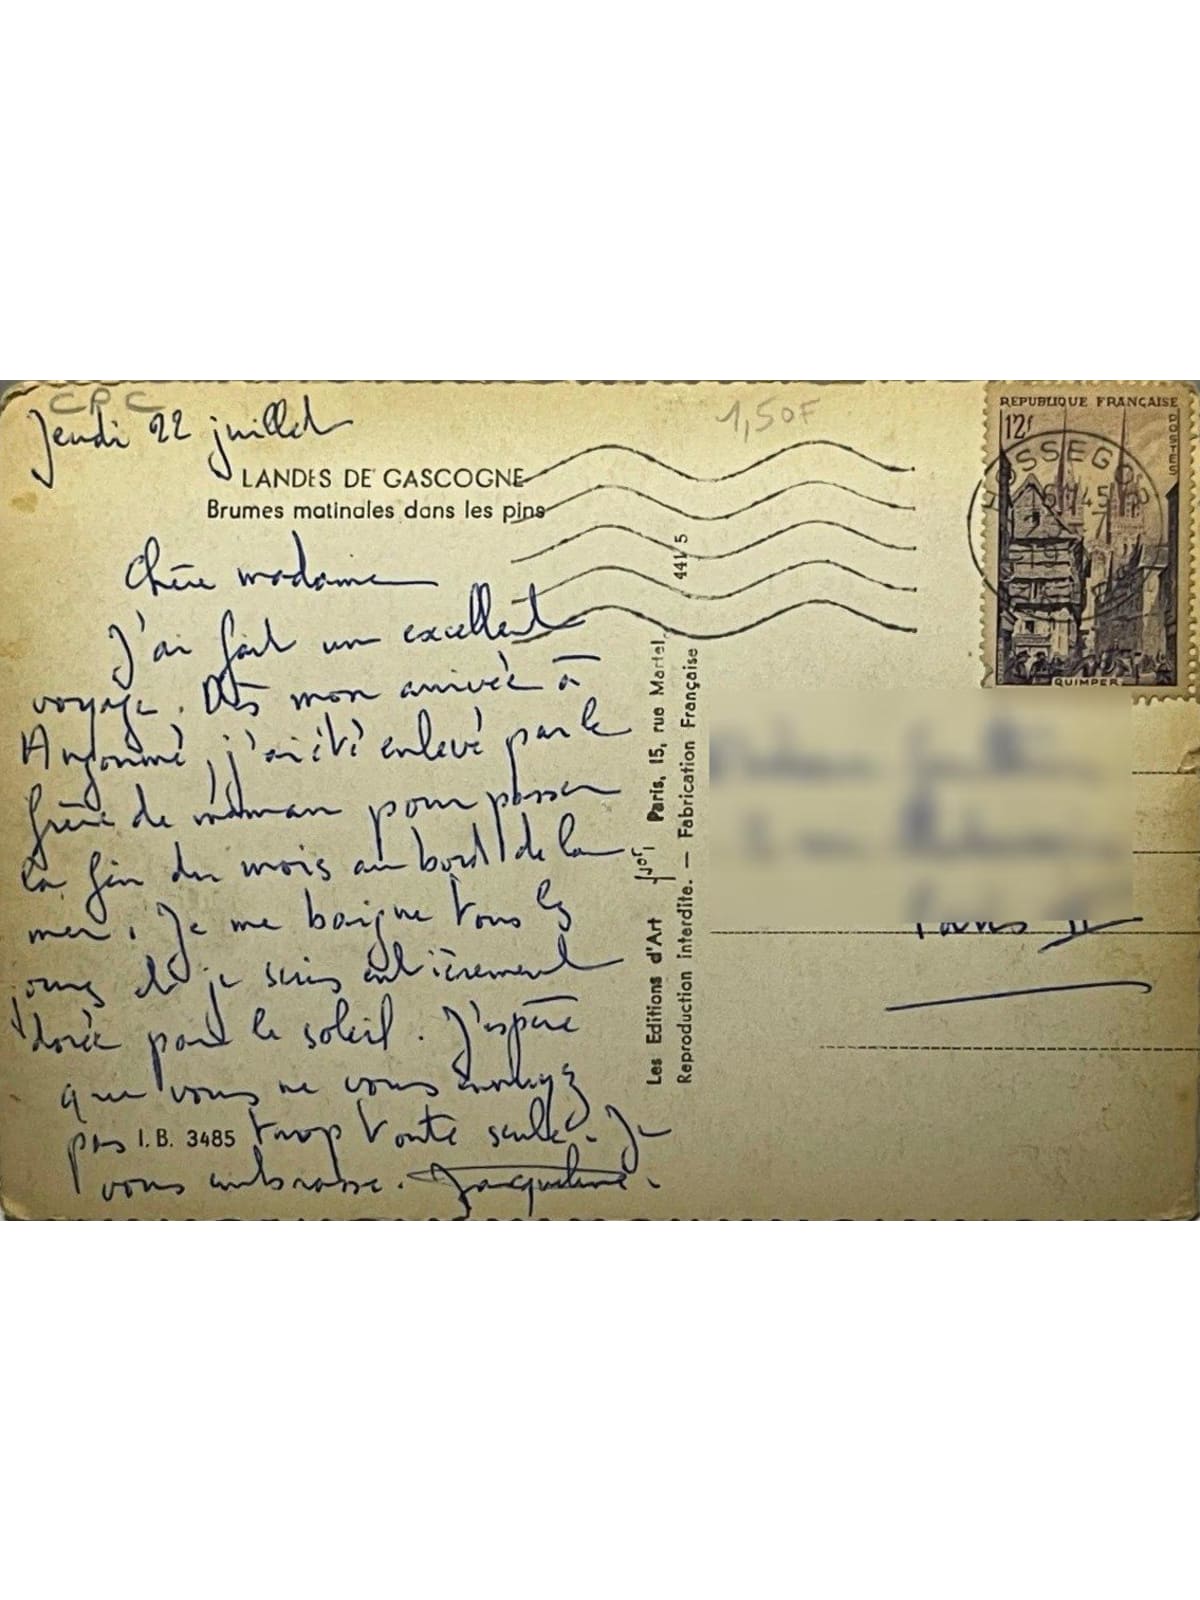 CPC
1,50F
Jeudi 22 juillet
LANDES DE GASCOGNE
Brumes matinales dans les pins
Chère madame
J'ai fait un excellent
voyage. Dès mon arrivée à
Angoumé, j'ai été enlevé par le
frère de maman pour passer
la fin du mois au bord de la
mer. Je me baigne tous les
jours et je suis entièrement
dorée par le soleil. J'espère
que vous ne vous ennuyez
pas trop toute seule. Je
I.B. 3485
vous embrasse. Jacqueline.
Les Editions d'Art "JOF" Paris, 15, rue Martel
Reproduction interdite. — Fabrication Française
REPUBLIQUE FRANÇAISE
12f
POSTES
QUIMPER
HOSSEGOR
16H45
Paris